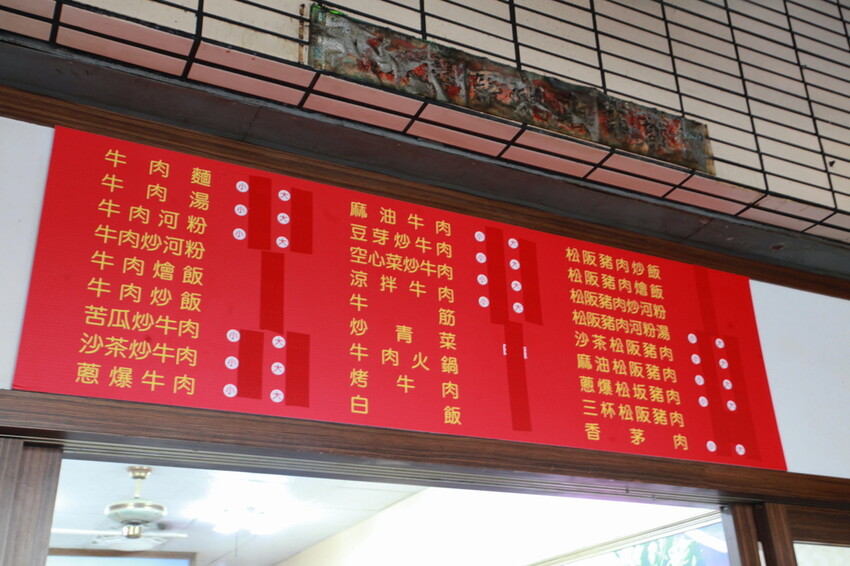 牛肉麵 小 大
牛肉湯 小 大
牛肉河粉 小 大
牛肉炒河粉
牛肉燴飯
牛肉炒飯
苦瓜炒牛肉 小 大
沙茶炒牛肉 小 大
蔥爆牛肉 小 大
麻油牛肉 小 大
豆芽炒牛肉 小 大
空心菜炒牛肉 小 大
涼拌牛肉 小 大
牛筋
炒青菜
牛肉火鍋
烤牛肉
白飯
松阪豬肉炒飯
松阪豬肉燴飯
松阪豬肉炒河粉
松阪豬肉河粉湯
沙茶松阪豬肉 小 大
麻油松阪豬肉 小 大
蔥爆松坂豬肉 小 大
三杯松阪豬肉 小 大
香茅肉 小 大